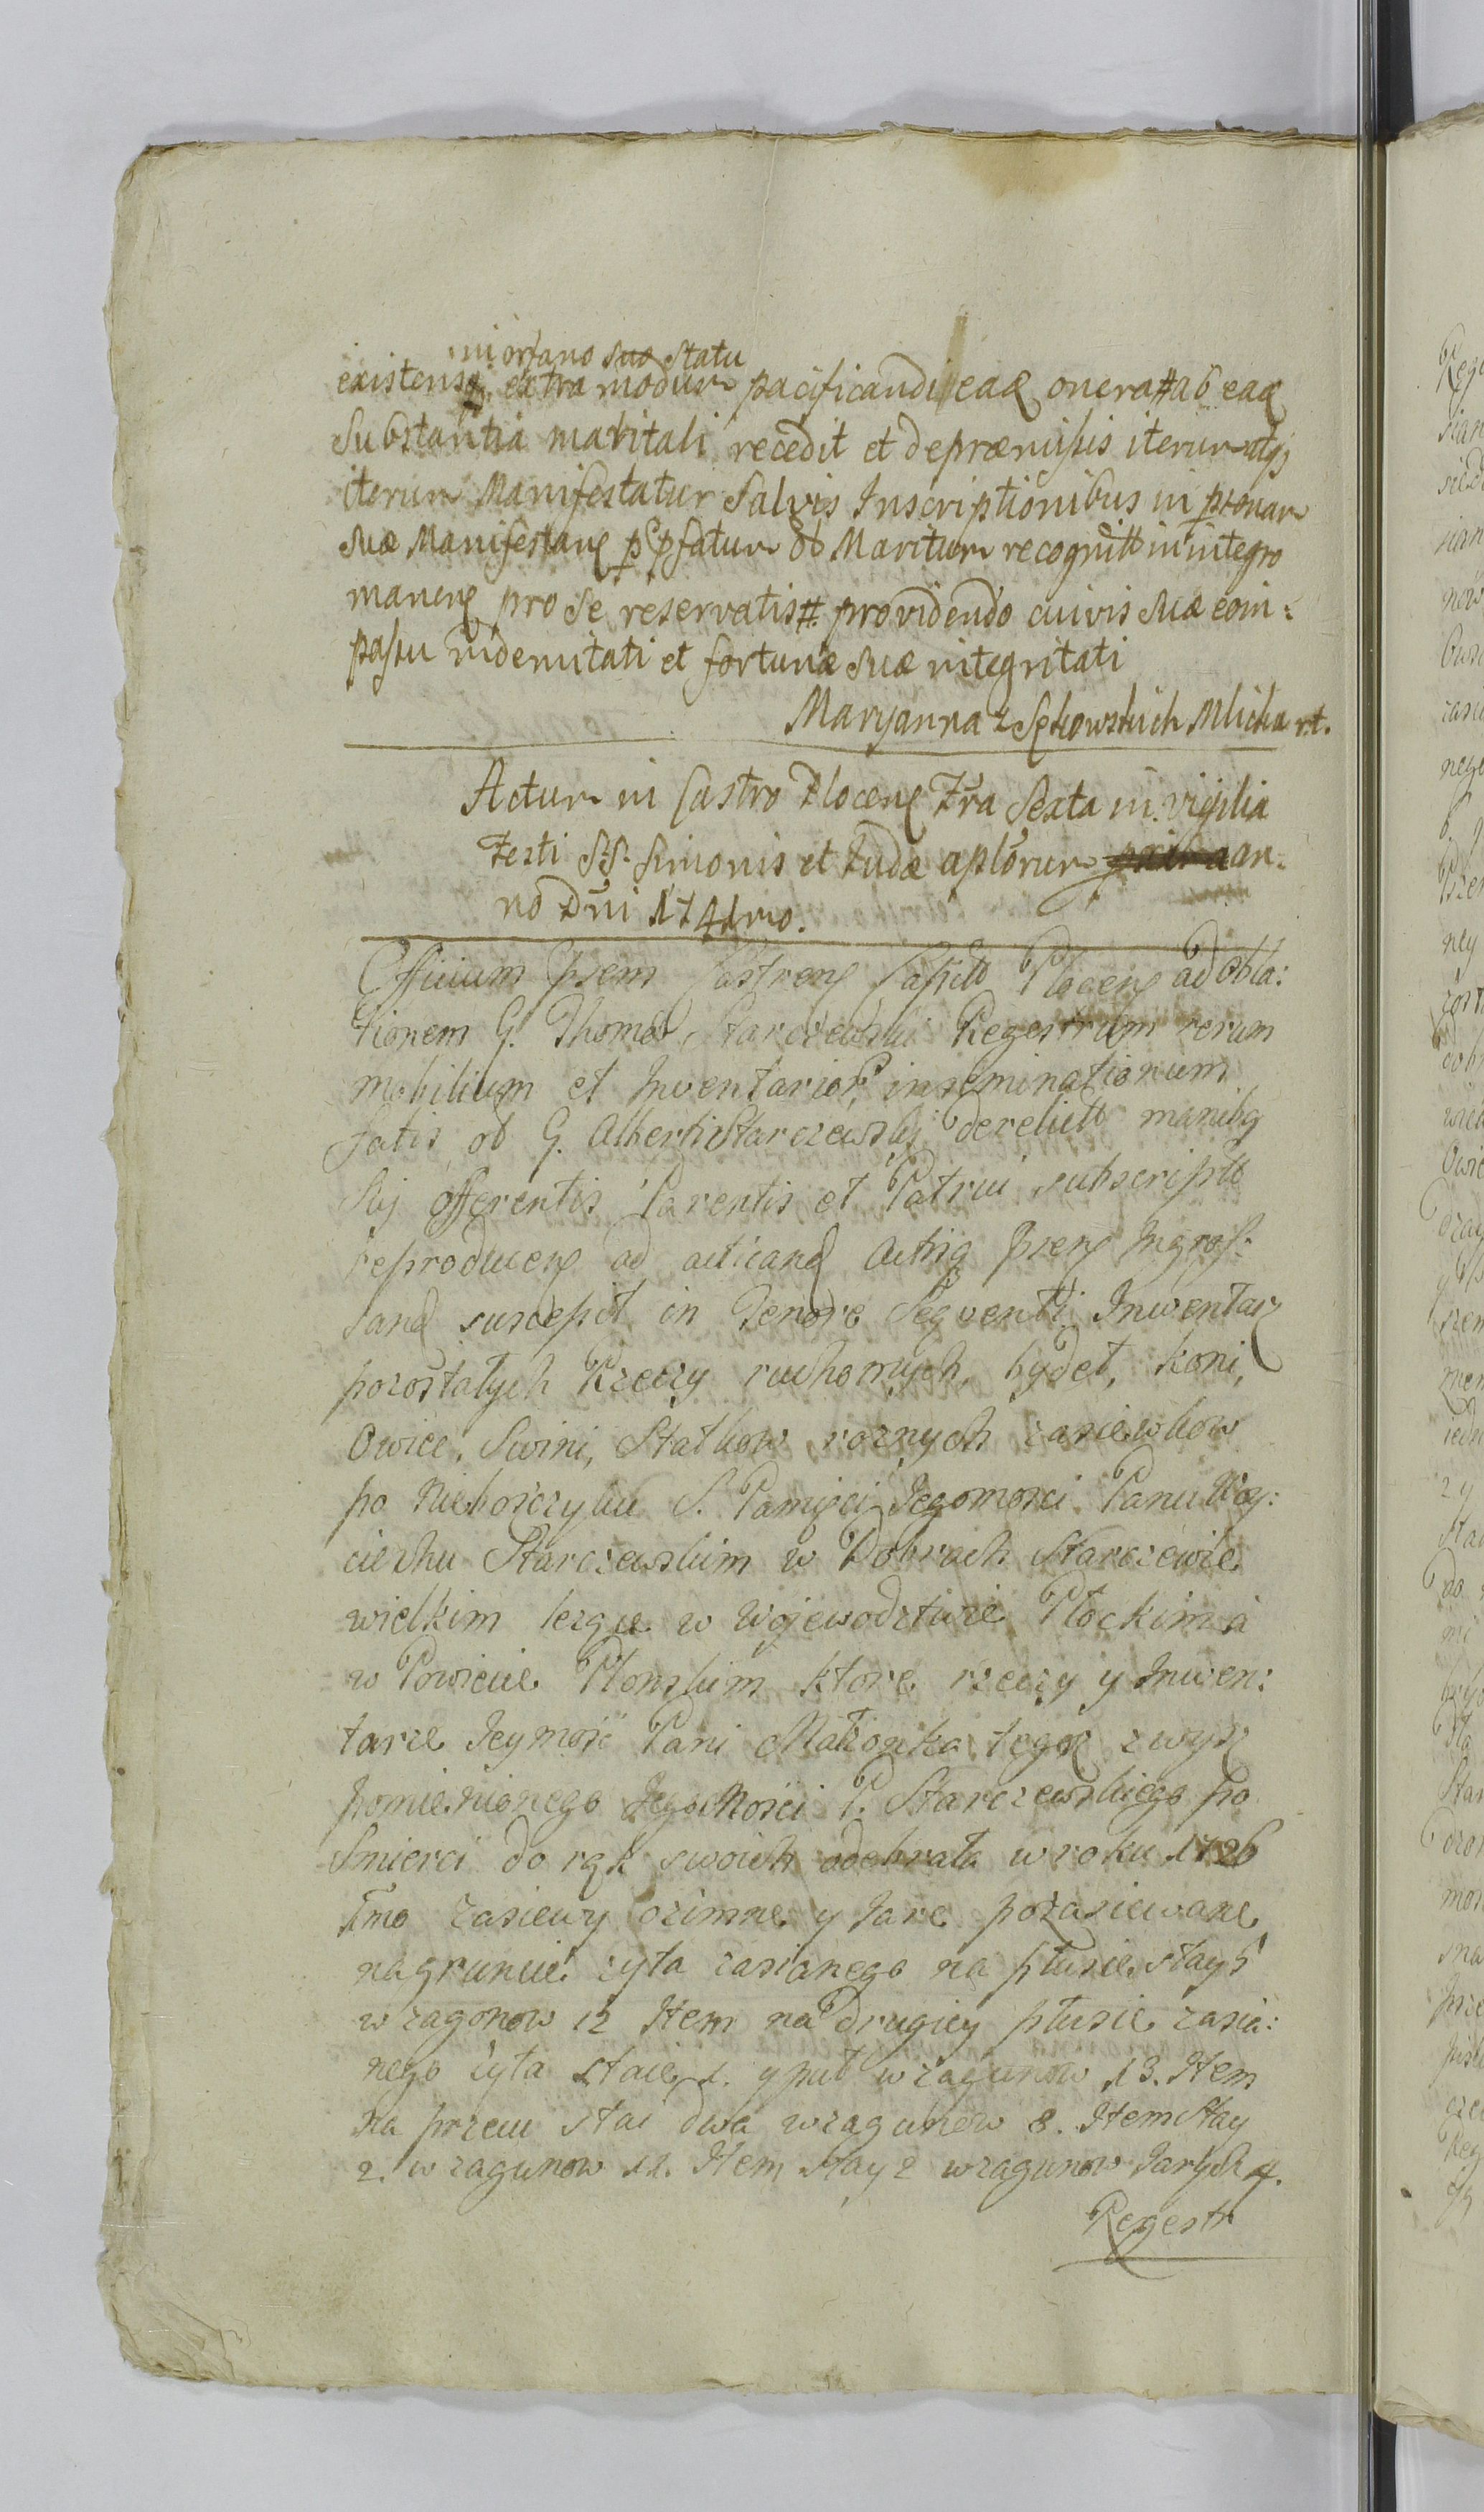 in orfano suo statu
existens extra modum pacificandi eaq onera # ab eaq
Substantia maritali recedit et de præmissis iterum atqȝ
iterum Manifestatur Salvis Inscriptionibus in personam
suæ Manifestanȩ p pfatum ol Maritum recognitt in integro
manenȩ pro se reservatis #. providendo cuivis suæ eoin:
passu indemnitati et fortunæ suæ integritati
Maryanna z Sękowskich Mlicka r.t.
Actum in Castro Plocenȩ Fra Sexta in vigilia
Festi S.S. Simonis et Judæ aplorum an:
no Dni 1741mo.
Officium psens Castrenȩ Capitt Plocenȩ ad obla:
tionem G. Thomæ Starczewski Regestrum rerum
mobilium et Inventarior inseminationum
fatis ol G. Alberti Starczewski derelictt manibq
Sui offerentis Parentis et Patrui subscriptt
reproducenȩ ad acticand Actisq psenȩ Ingros:
sand suscepit in Tenore Seqventi Inwentarz
pozostałych Rzeczy ruchomych, bydeł, koni,
Owiec, Swini, Statkow roznych zasiewkow
po Nieboszczyku S. Pamięci Jegomosci Panu Woy:
ciechu Starczewskim w Dobrach Starczewie
wielkim lezące w Wojewodztwie Płockim à
w Powiecie Płonskim ktore rzeczy y Inwen:
tarze Jeymość Pani Małżonka tegoz zwysz
pomienionego Jegomości P. Starczewskiego po
Smierci do rąk swoich odebrała w roku 1726
1mo zasiewy ozimne y Jare pozasiewane
na gruncie zyta zasianego na płusie stay 5
w zagonow 12 Item na drugiey płusie zasia:
nego zyta staie 1. y puł w zagunow 13. Item
na przeiu stai dwa w zagunow 8. Item stay
2. w zagunow 12. Item stay 2 w zagunow Jarych 4.
Regestr